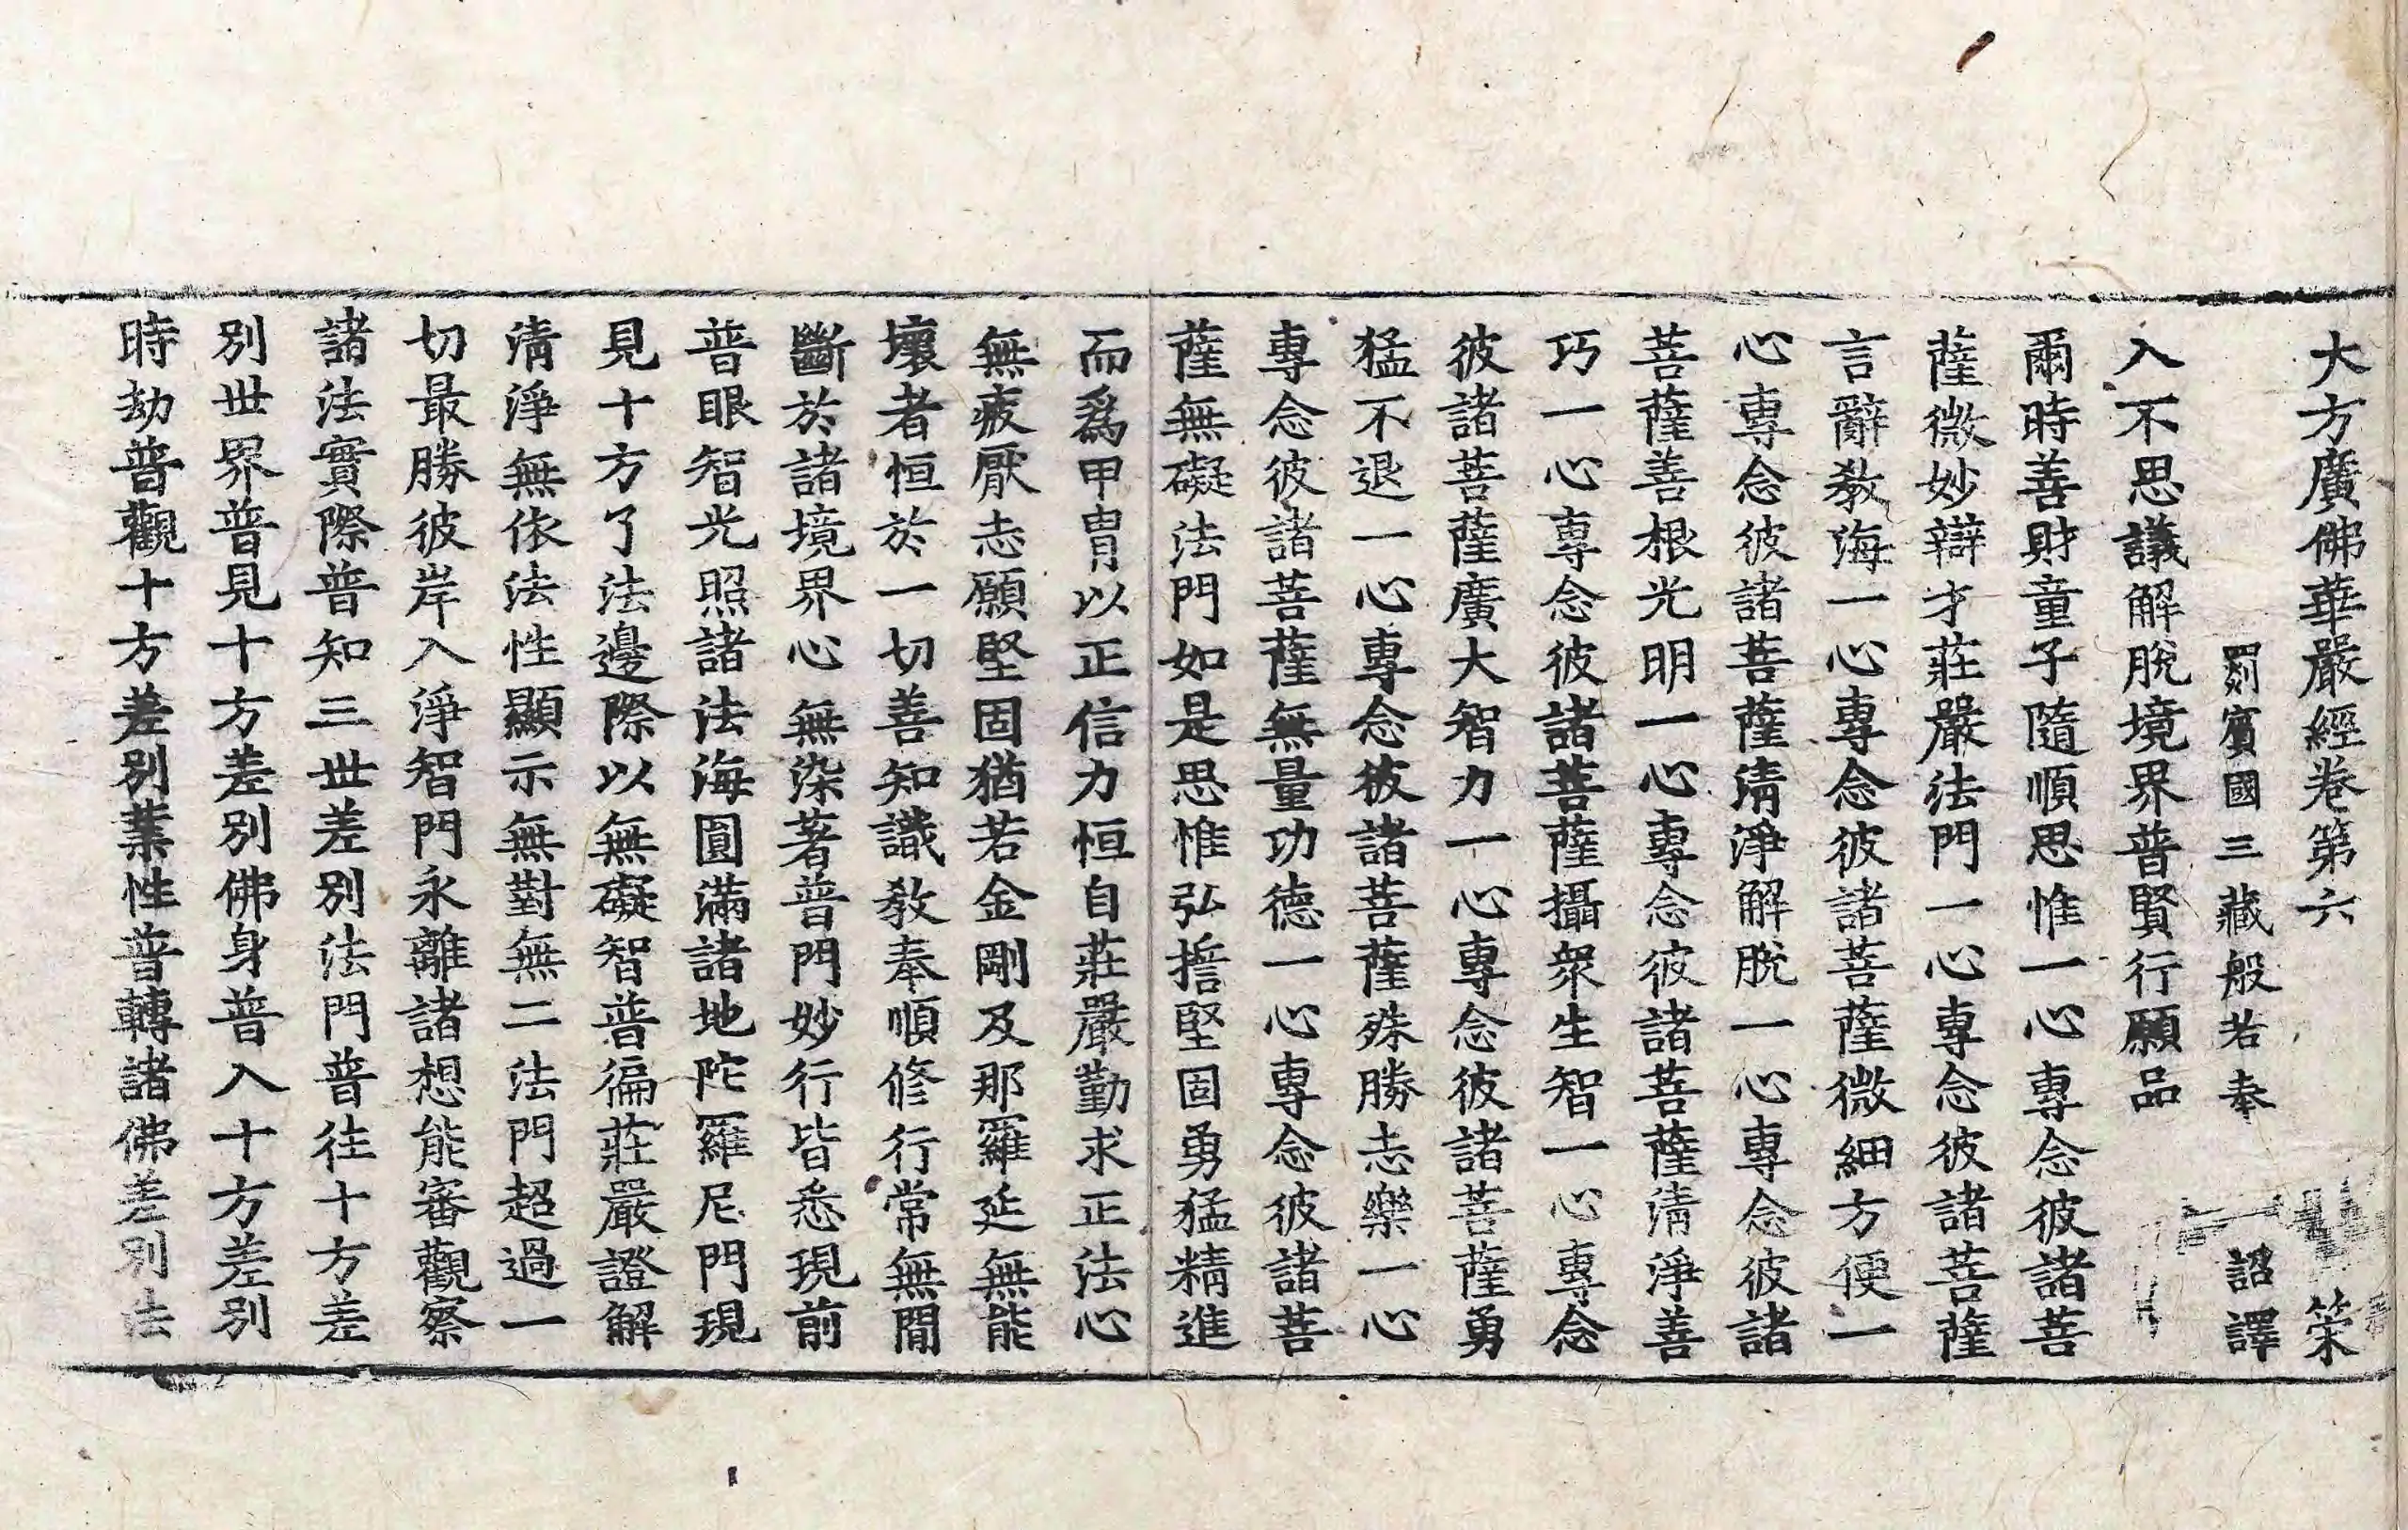 大方廣佛華嚴經卷第六
罽賓國三藏般若奉 詔譯
入不思議解脫境界普賢行願品
爾時善財童子隨順思惟一心專念彼諸菩
薩微妙辯才莊嚴法門一心專念彼諸菩薩
言辭教海一心專念彼諸菩薩微細方便一
心專念彼諸菩薩清淨解脫一心專念彼諸
菩薩善根光明一心專念彼諸菩薩清淨善
巧一心專念彼諸菩薩攝衆生智一心專念
彼諸菩薩廣大智力一心專念彼諸菩薩勇
猛不退一心專念彼諸菩薩殊勝志樂一心
專念彼諸菩薩無量功德一心專念彼諸菩
薩無礙法門如是思惟弘誓堅固勇猛精進
而爲甲冑以正信力恒自莊嚴勤求正法心
無疲厭志願堅固猶若金剛及那羅延無能
壞者恒於一切善知識教奉順修行常無間
斷於諸境界心無染著普門妙行皆悉現前
普眼智光照諸法海圓滿諸地陀羅尼門現
見十方了法邊際以無礙智普徧莊嚴證解
清淨無依法性顯示無對無二法門超過一
切最勝彼岸入淨智門永離諸想能審觀察
諸法實際普知三世差別法門普往十方差
別世界普見十方差別佛身普入十方差別
時劫普觀十方差別業性普轉諸佛差別法